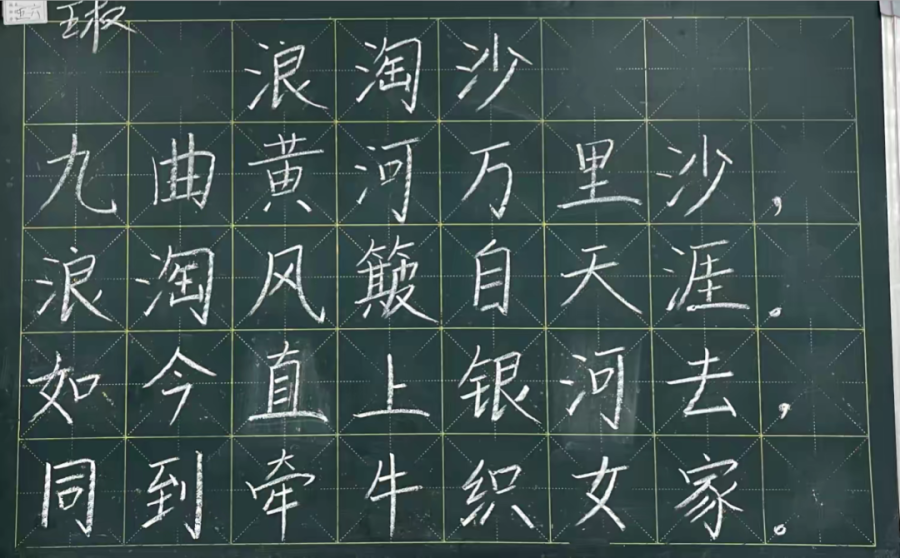 浪淘沙
九曲黄河万里沙，
浪淘风簸自天涯。
如今直上银河去，
同到牵牛织女家。